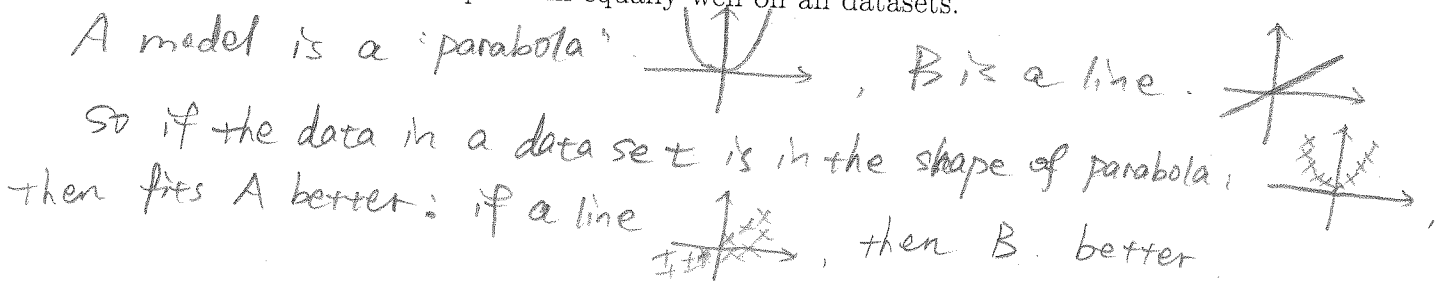 equally well on all datasets.
A model is a "parabola". , B is a line.
so if the data in a data set is in the shape of parabola,
then fits A better: if a line , then B. better